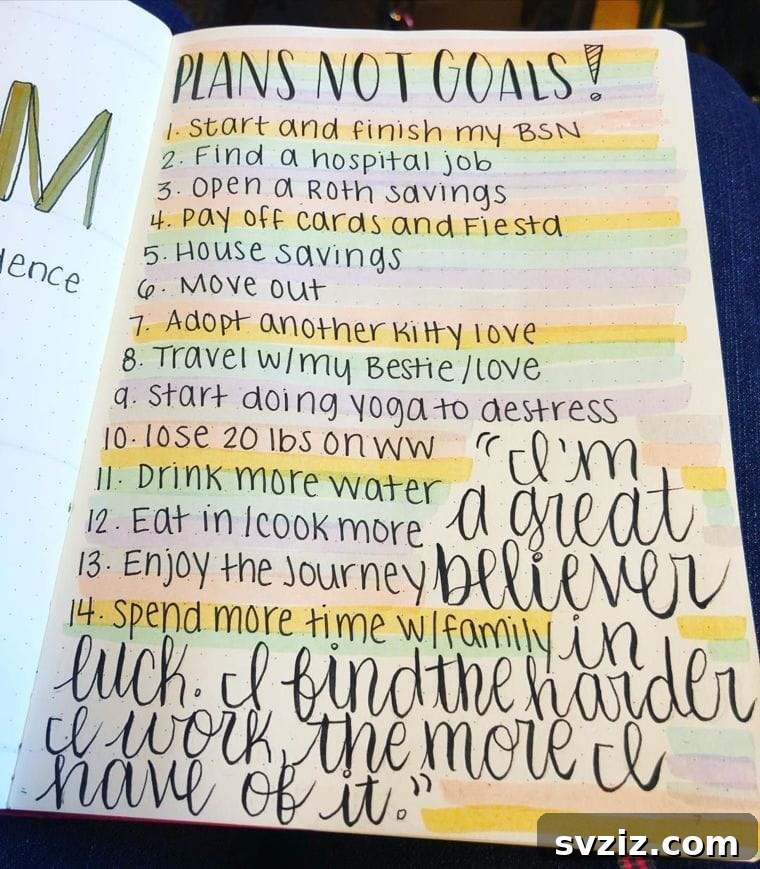 M
dence
PLANS NOT GOALS!
1. Start and finish my BSN
2. Find a hospital job
3. Open a Roth savings
4. Pay off cards and Fiesta
5. House savings
6. Move out
7. Adopt another kitty love
8. Travel w/my Bestie/love
9. Start doing yoga to destress
10. lose 20 lbs on WW
11. Drink more water
12. Eat in/cook more
13. Enjoy the Journey
14. Spend more time w/family
"I'm
a great
believer
in
luck. I find the harder
I work, the more I
have of it."
svziz.com